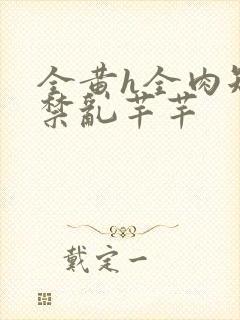 全黄h全肉短
禁乱芊芊
戴定一